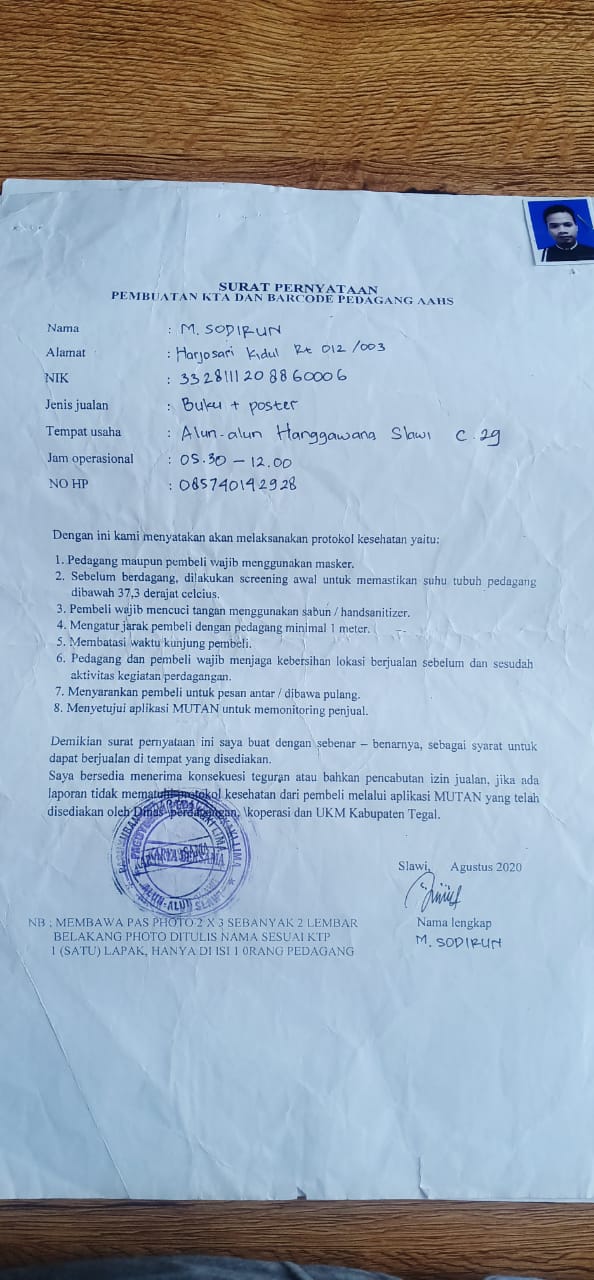 SURAT PERNYATAAN
PEMBUATAN KTA DAN BARCODE PEDAGANG AAHS
Nama : M. SODIRUN
Alamat : Harjosari Kidul Rt 012 /003
NIK : 3328111208860006
Jenis jualan : Buku + poster
Tempat usaha : Alun-alun Hanggawana Slawi C.29
Jam operasional : 05.30 – 12.00
NO HP : 085740142928
Dengan ini kami menyatakan akan melaksanakan protokol kesehatan yaitu:
1. Pedagang maupun pembeli wajib menggunakan masker.
2. Sebelum berdagang, dilakukan screening awal untuk memastikan suhu tubuh pedagang
dibawah 37,3 derajat celcius.
3. Pembeli wajib mencuci tangan menggunakan sabun / handsanitizer.
4. Mengatur jarak pembeli dengan pedagang minimal 1 meter.
5. Membatasi waktu kunjung pembeli.
6. Pedagang dan pembeli wajib menjaga kebersihan lokasi berjualan sebelum dan sesudah
aktivitas kegiatan perdagangan.
7. Menyarankan pembeli untuk pesan antar / dibawa pulang.
8. Menyetujui aplikasi MUTAN untuk memonitoring penjual.
Demikian surat pernyataan ini saya buat dengan sebenar – benarnya, sebagai syarat untuk
dapat berjualan di tempat yang disediakan.
Saya bersedia menerima konsekuesi teguran atau bahkan pencabutan izin jualan, jika ada
laporan tidak mematuhi protokol kesehatan dari pembeli melalui aplikasi MUTAN yang telah
disediakan oleh Dinas perdagangan, koperasi dan UKM Kabupaten Tegal.
ALUN-ALUN SLAWI
Slawi, Agustus 2020
Nama lengkap
M. SODIRUN
NB : MEMBAWA PAS PHOTO 2 X 3 SEBANYAK 2 LEMBAR
BELAKANG PHOTO DITULIS NAMA SESUAI KTP
1 (SATU) LAPAK, HANYA DI ISI 1 0RANG PEDAGANG